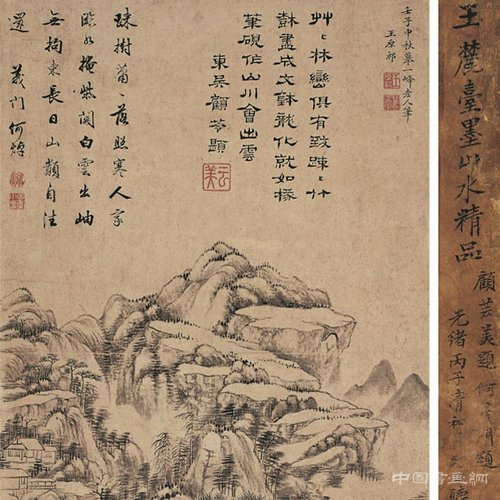 王麓臺墨山水精品
顧芸美題 何 門題
光緒丙子清和
壬子中秋摹一峰老人筆
王原祁
艸艸林巒俱有致疎疎竹
樹盡成文鉢龍化就如椽
筆硯作山川會出雲
東吳顧苓題
云美
疎樹蕭蕭落照寒人家
臨水掩柴關白雲出岫
無拘束長日山顛自往
還 義門何焯
中國書畫網